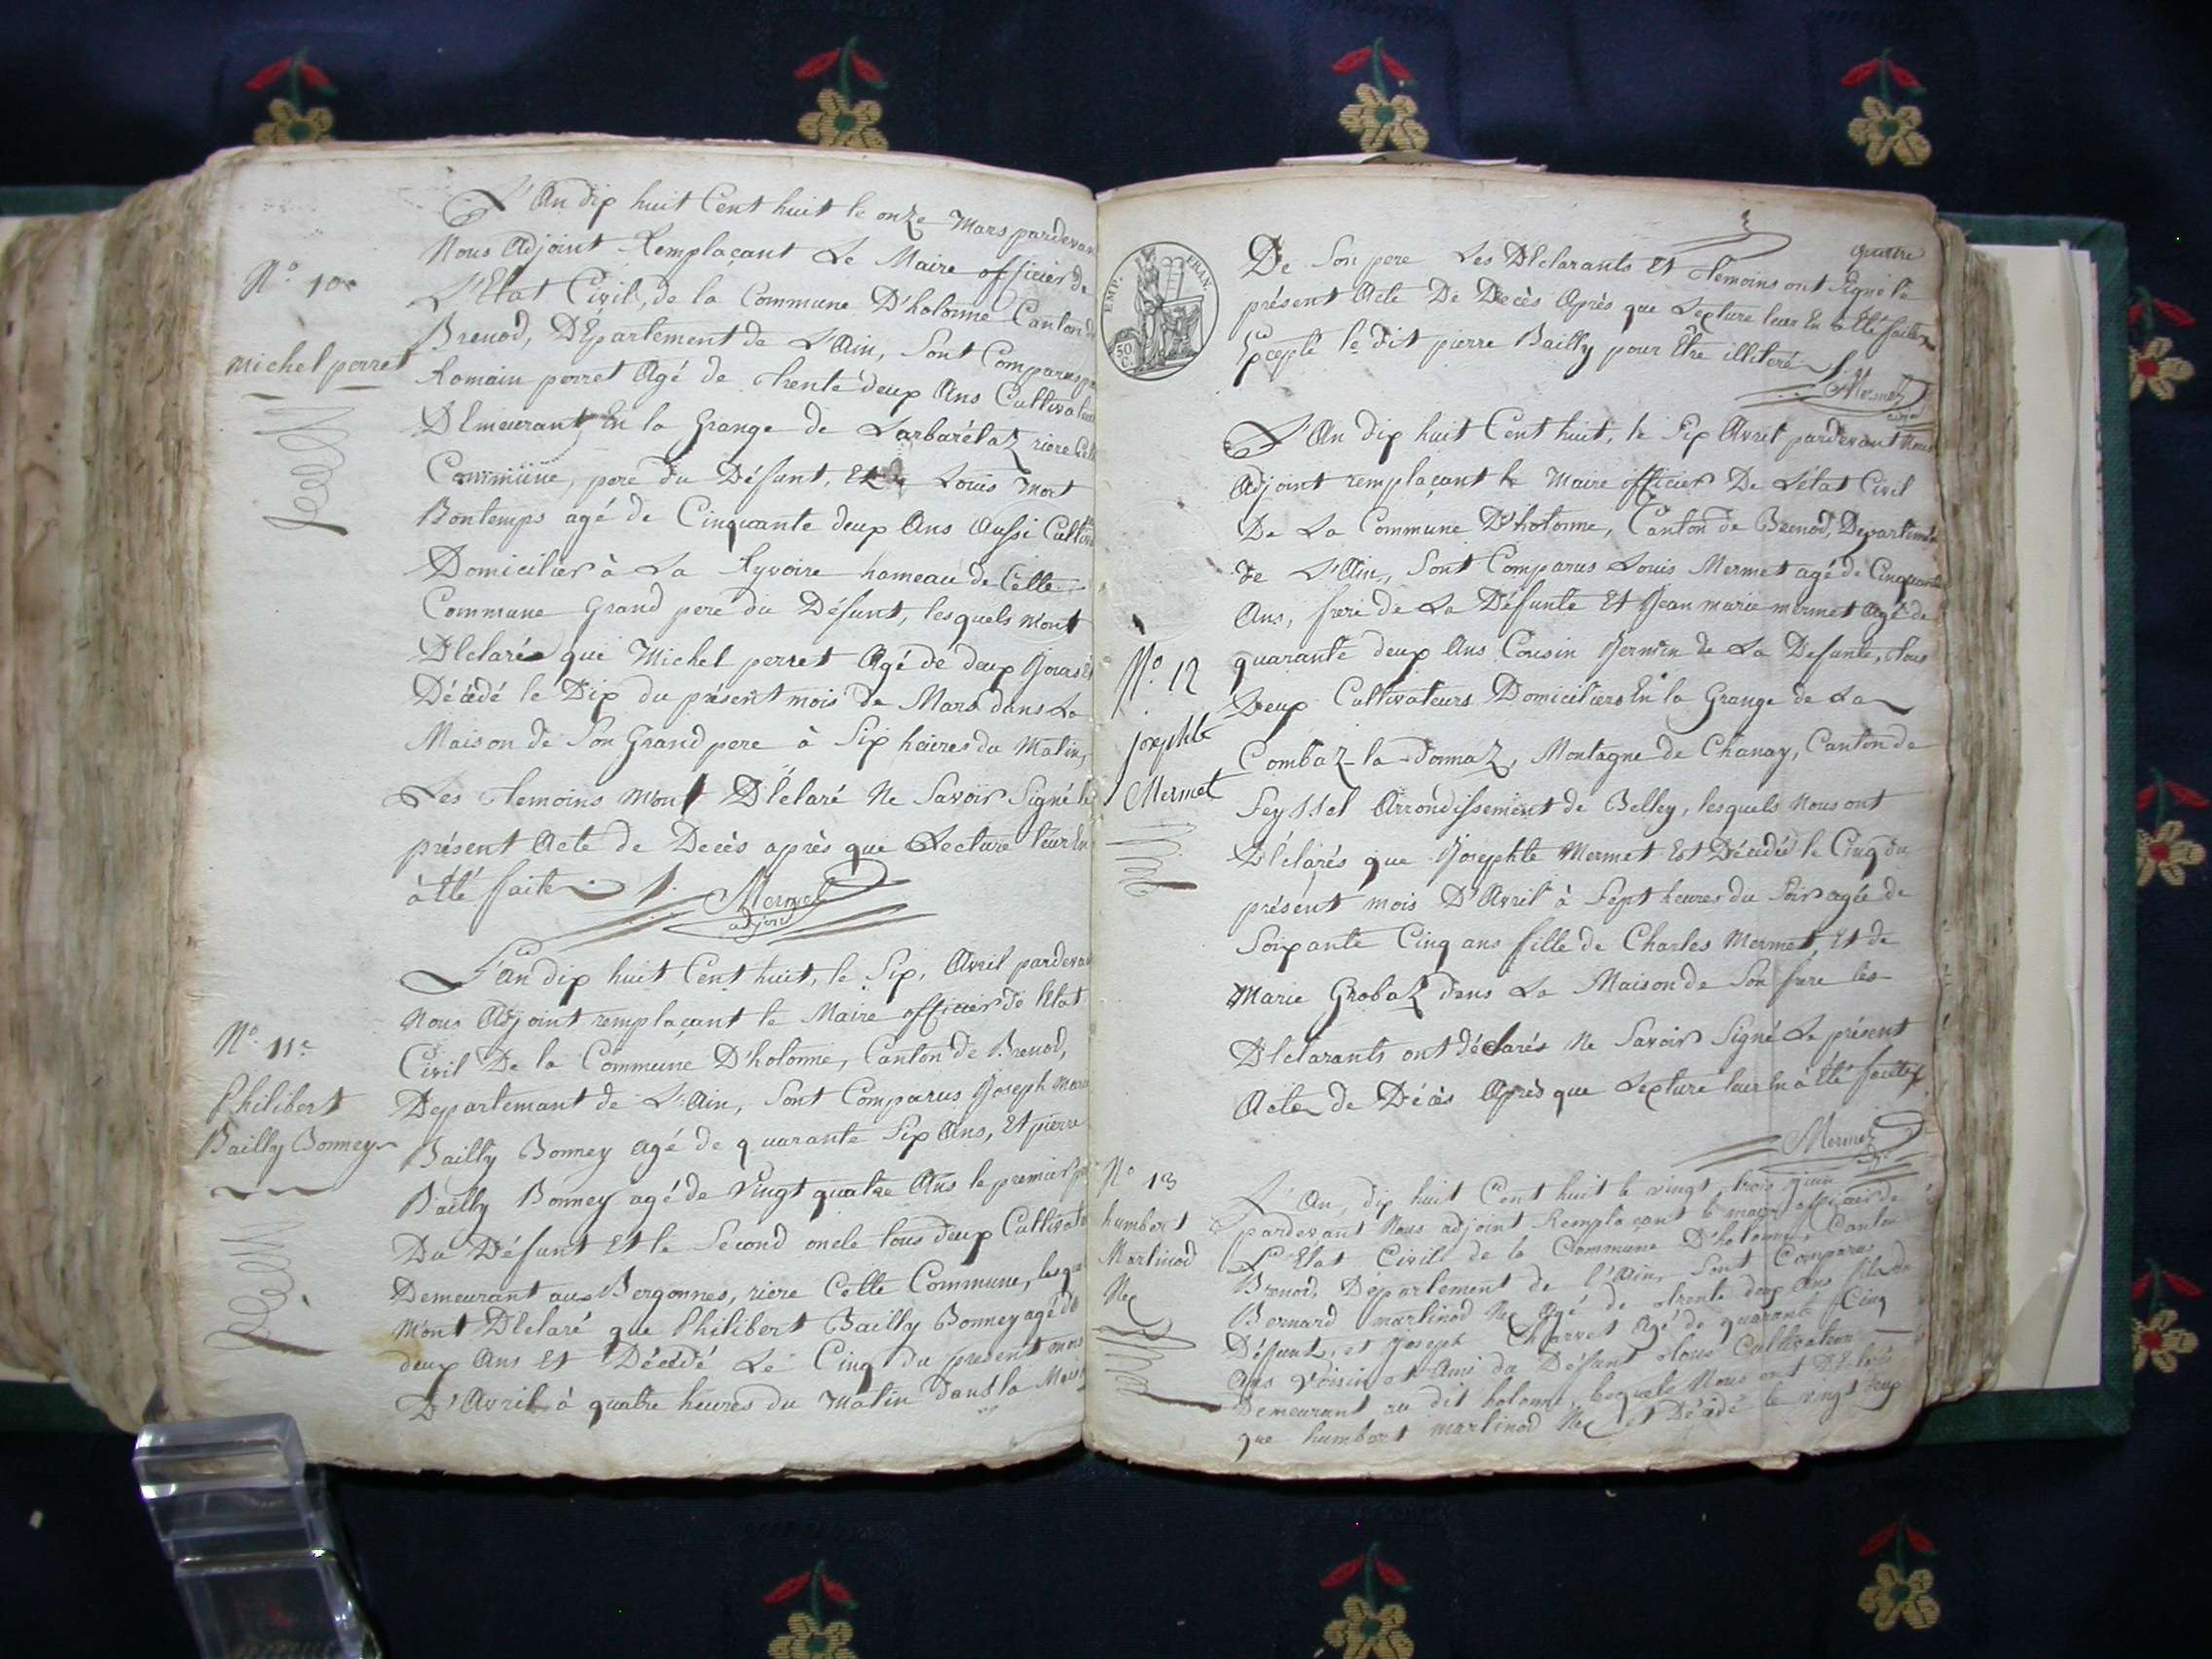 L'An dix huit Cent huit le onze Mars pardevan
Nous Adjoint Remplaçant Le Maire officier de
N.o 10e
L'Etat Civil, de la Commune D'hotonne Canton d
Brenod, Département de L'Ain, Sont Comparus
Michel perret
Romain perret Agé de trente deux Ans Cultivateur
Demeurant En la Grange de Larbarétaz riere Cette
Commune, pere du Défunt, Et Louis Mort
Bontemps agé de Cinquante deux Ans Aussi Cultiv
Domicilier à La Ryvoire hameau de Cette
Commune Grand pere du Défunt, lesquels M'ont
Déclarés que Michel perret Agé de deux Jours Et
Décédé le Dix du présent mois de Mars dans La
Maison de Son Grand pere à Six heures du Matin,
Les temoins M'ont Déclaré Ne Savoir Signé le
présent Acte de Decès après que Lecture leur En
à été faite.
Mermet
adjoint
L'an dix huit Cent huit, le Six, Avril pardevan
Nous Adjoint remplaçant le Maire officier de l'état
N.o 11e
Civil De la Commune D'hotonne, Canton de Brenod,
Philibert
Departemant de L'Ain, Sont Comparus Joseph Marie
Bailly Bonney
Bailly Bonney agé de quarante Six Ans, Et pierre
Bailly Bonney agé de Vingt quatre Ans le premier pe
Du Défunt Et le Second oncle tous deux Cultivate
Demeurant aux Bergonnes, riere Cette Commune, lesqu
M'ont Déclaré que Philibert Bailly Bonney agé de
deux Ans Et Décédé Le Cinq du present mois
D'Avril à quatre heures du Matin dans la Mais
EMP. FRAN.
50 C.
quatre
De Son pere Les Déclarants Et temoins ont Signé le
présent Acte De Decès Après que Lexture leur En à Eté faite
Excepté le dit pierre Bailly pour Etre illiteré
Mermet
L'An dix huit Cent huit, le Six Avril pardevant Nous
Adjoint remplaçant le Maire officier De L'état Civil
De La Commune D'hotonne, Canton de Brenod, Departemen
de L'Ain, Sont Comparus Louis Mermet agé de Cinquante
Ans, frere de La Défunte Et Jean marie mermet Agé de
N.o 12
quarante deux Ans Cousin Germin de La Defunte, tous
Deux Cultivateurs Domiciliers En la Grange de La
Josephte
Combaz-la-donnaz, Montagne de Chanay, Canton de
Mermet
Seyssel Arrondissement de Belley, lesquels Nous ont
Déclarés que Josephte Mermet Est Décédée le Cinq du
présent mois D'Avril à Sept heures du Soir agée de
Soixante Cinq ans fille de Charles Mermet, Et de
Marie Grobaz dans La Maison de Son frere les
Déclarants ont déclarés Ne Savoir Signé Le présent
Acte de Décès Après que Lexture leur En à été faite
Mermet
N.o 13
L'An, dix huit Cent huit le vingt trois juin
humbert
pardevant Nous adjoint Remplaçant le maire officier de
Martinod
L'Etat Civile de la Commune D'hotonne, Canton
Brenod, Département de l'Ain, Sont Comparus
Bernard martinod Agé de trente deux Ans fils du
Défunt, et Joseph Charvet Agé de quarante Cinq
Ans Voisin et Ami du Défunt tous Cultivateur
Demeurant au dit hotonne, lesquels Nous ont Déclarés
que humbert martinod et Décédé le vingt deux